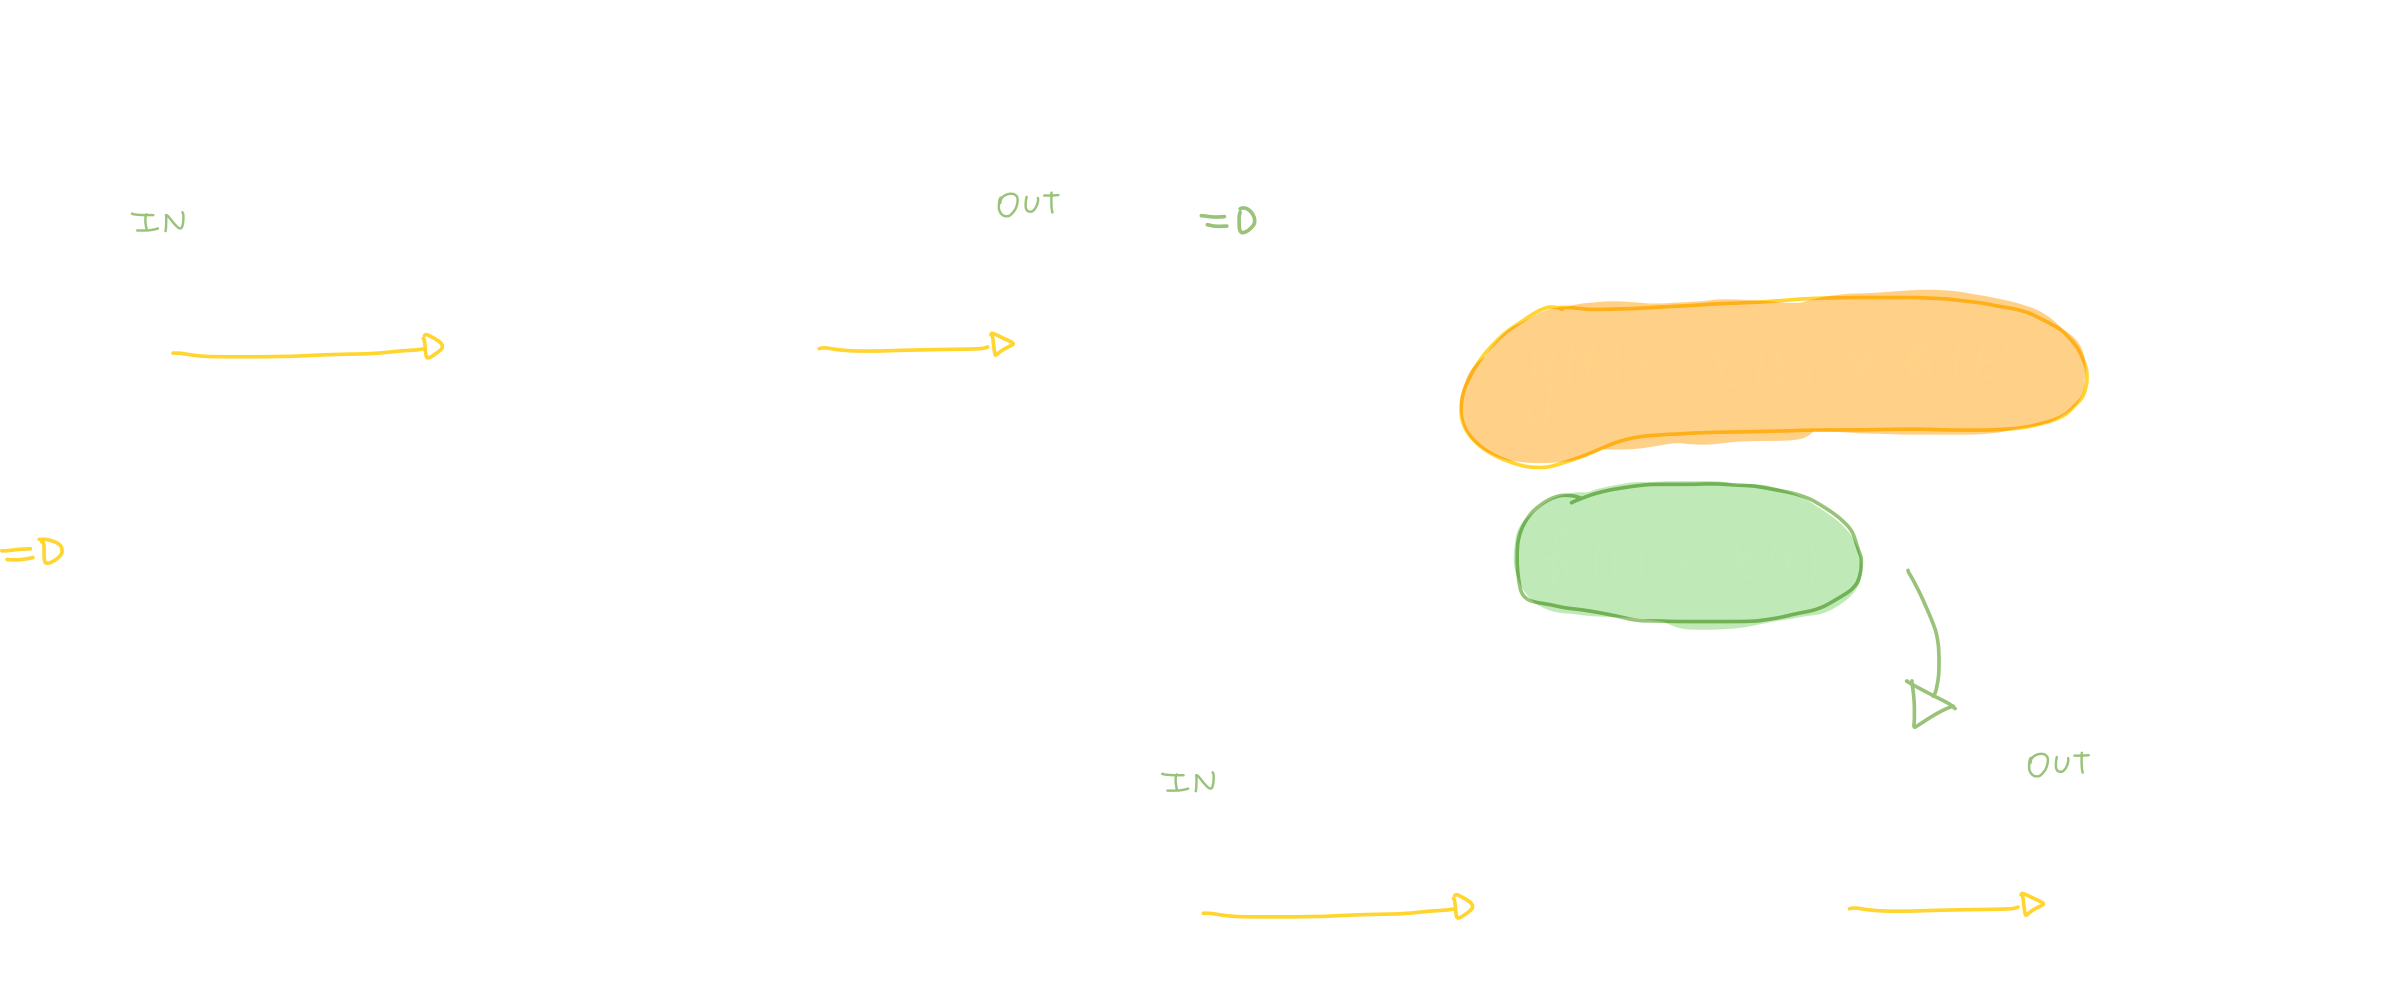 IN
OUT
=D
=D
IN
OUT